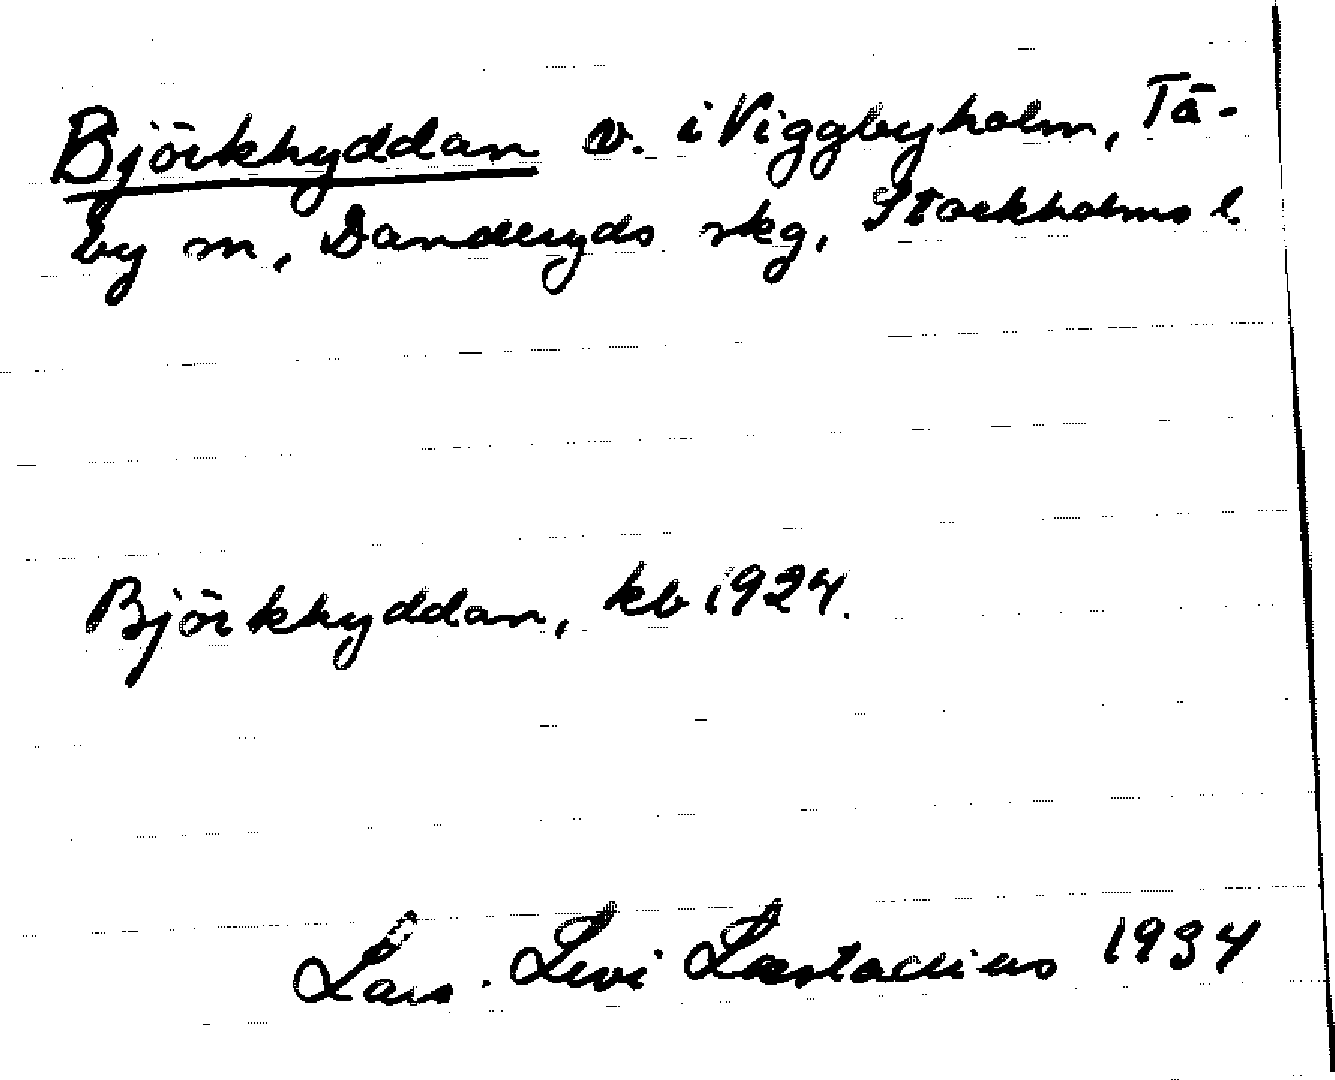 Björkhyddan v. i Viggbyholm, Tä-
by sn, Danderyds skg, Stockholms l.
Björkhyddan, kb 1924.
Lars-Levi Læstadius 1934